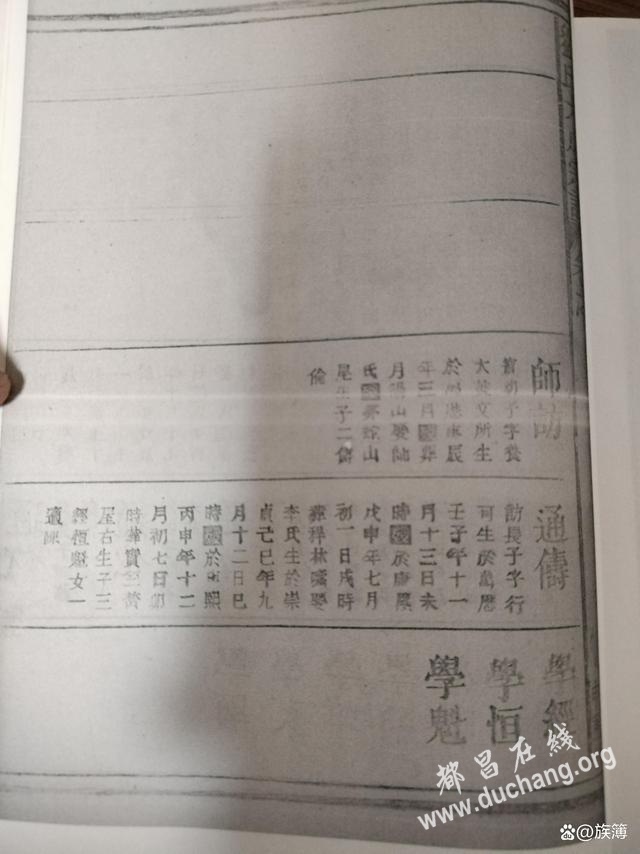 師訪
子字養
大英文所生
於辰
年三月葬
月山娶師
氏葬蛇山
尾生子二儔
倫
通儔
訪長子字行
可生於萬曆
壬子年十一
月十三日未
時於康熙
戊申年七月
初一日戌時
葬祥林嘴娶
李氏生於崇
貞己巳年九
月十二日巳
時於康熙
丙申年十二
月初七日卯
時葬實
屋右生子三
經恒魁女一
適陳
學經
學恒
學魁
都昌在线
www.duchang.org
Bai@族簿